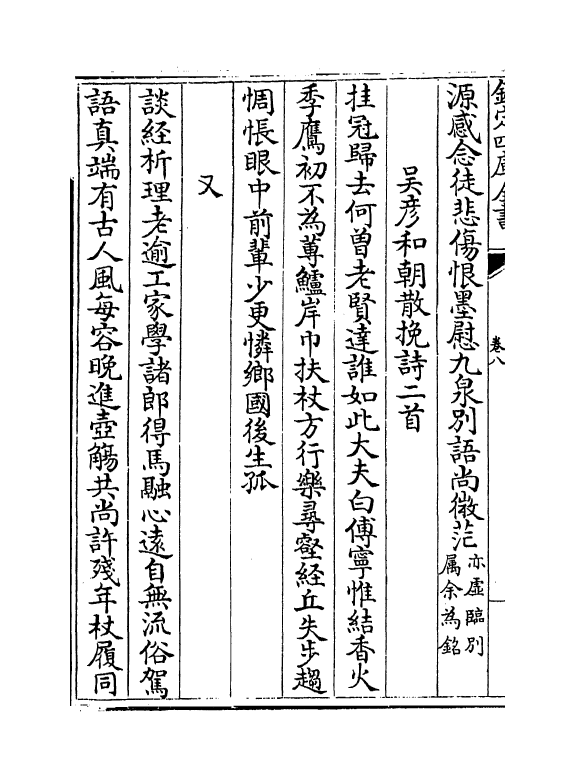 欽定四庫全書
卷八
源感念徒悲傷恨墨慰九泉別語尚微茫亦虛臨別
属余為銘
吴彦和朝散挽詩二首
挂冠歸去何曽老賢達誰如此大夫白傅寧惟結香火
季鷹初不為蓴鱸岸巾扶杖方行樂尋壑経丘失步趨
惆悵眼中前輩少更憐鄉國後生孤
又
談経析理老逾工家學諸郎得馬融心逺自無流俗駕
語真端有古人風每容晚進壺觴共尚許殘年杖履同